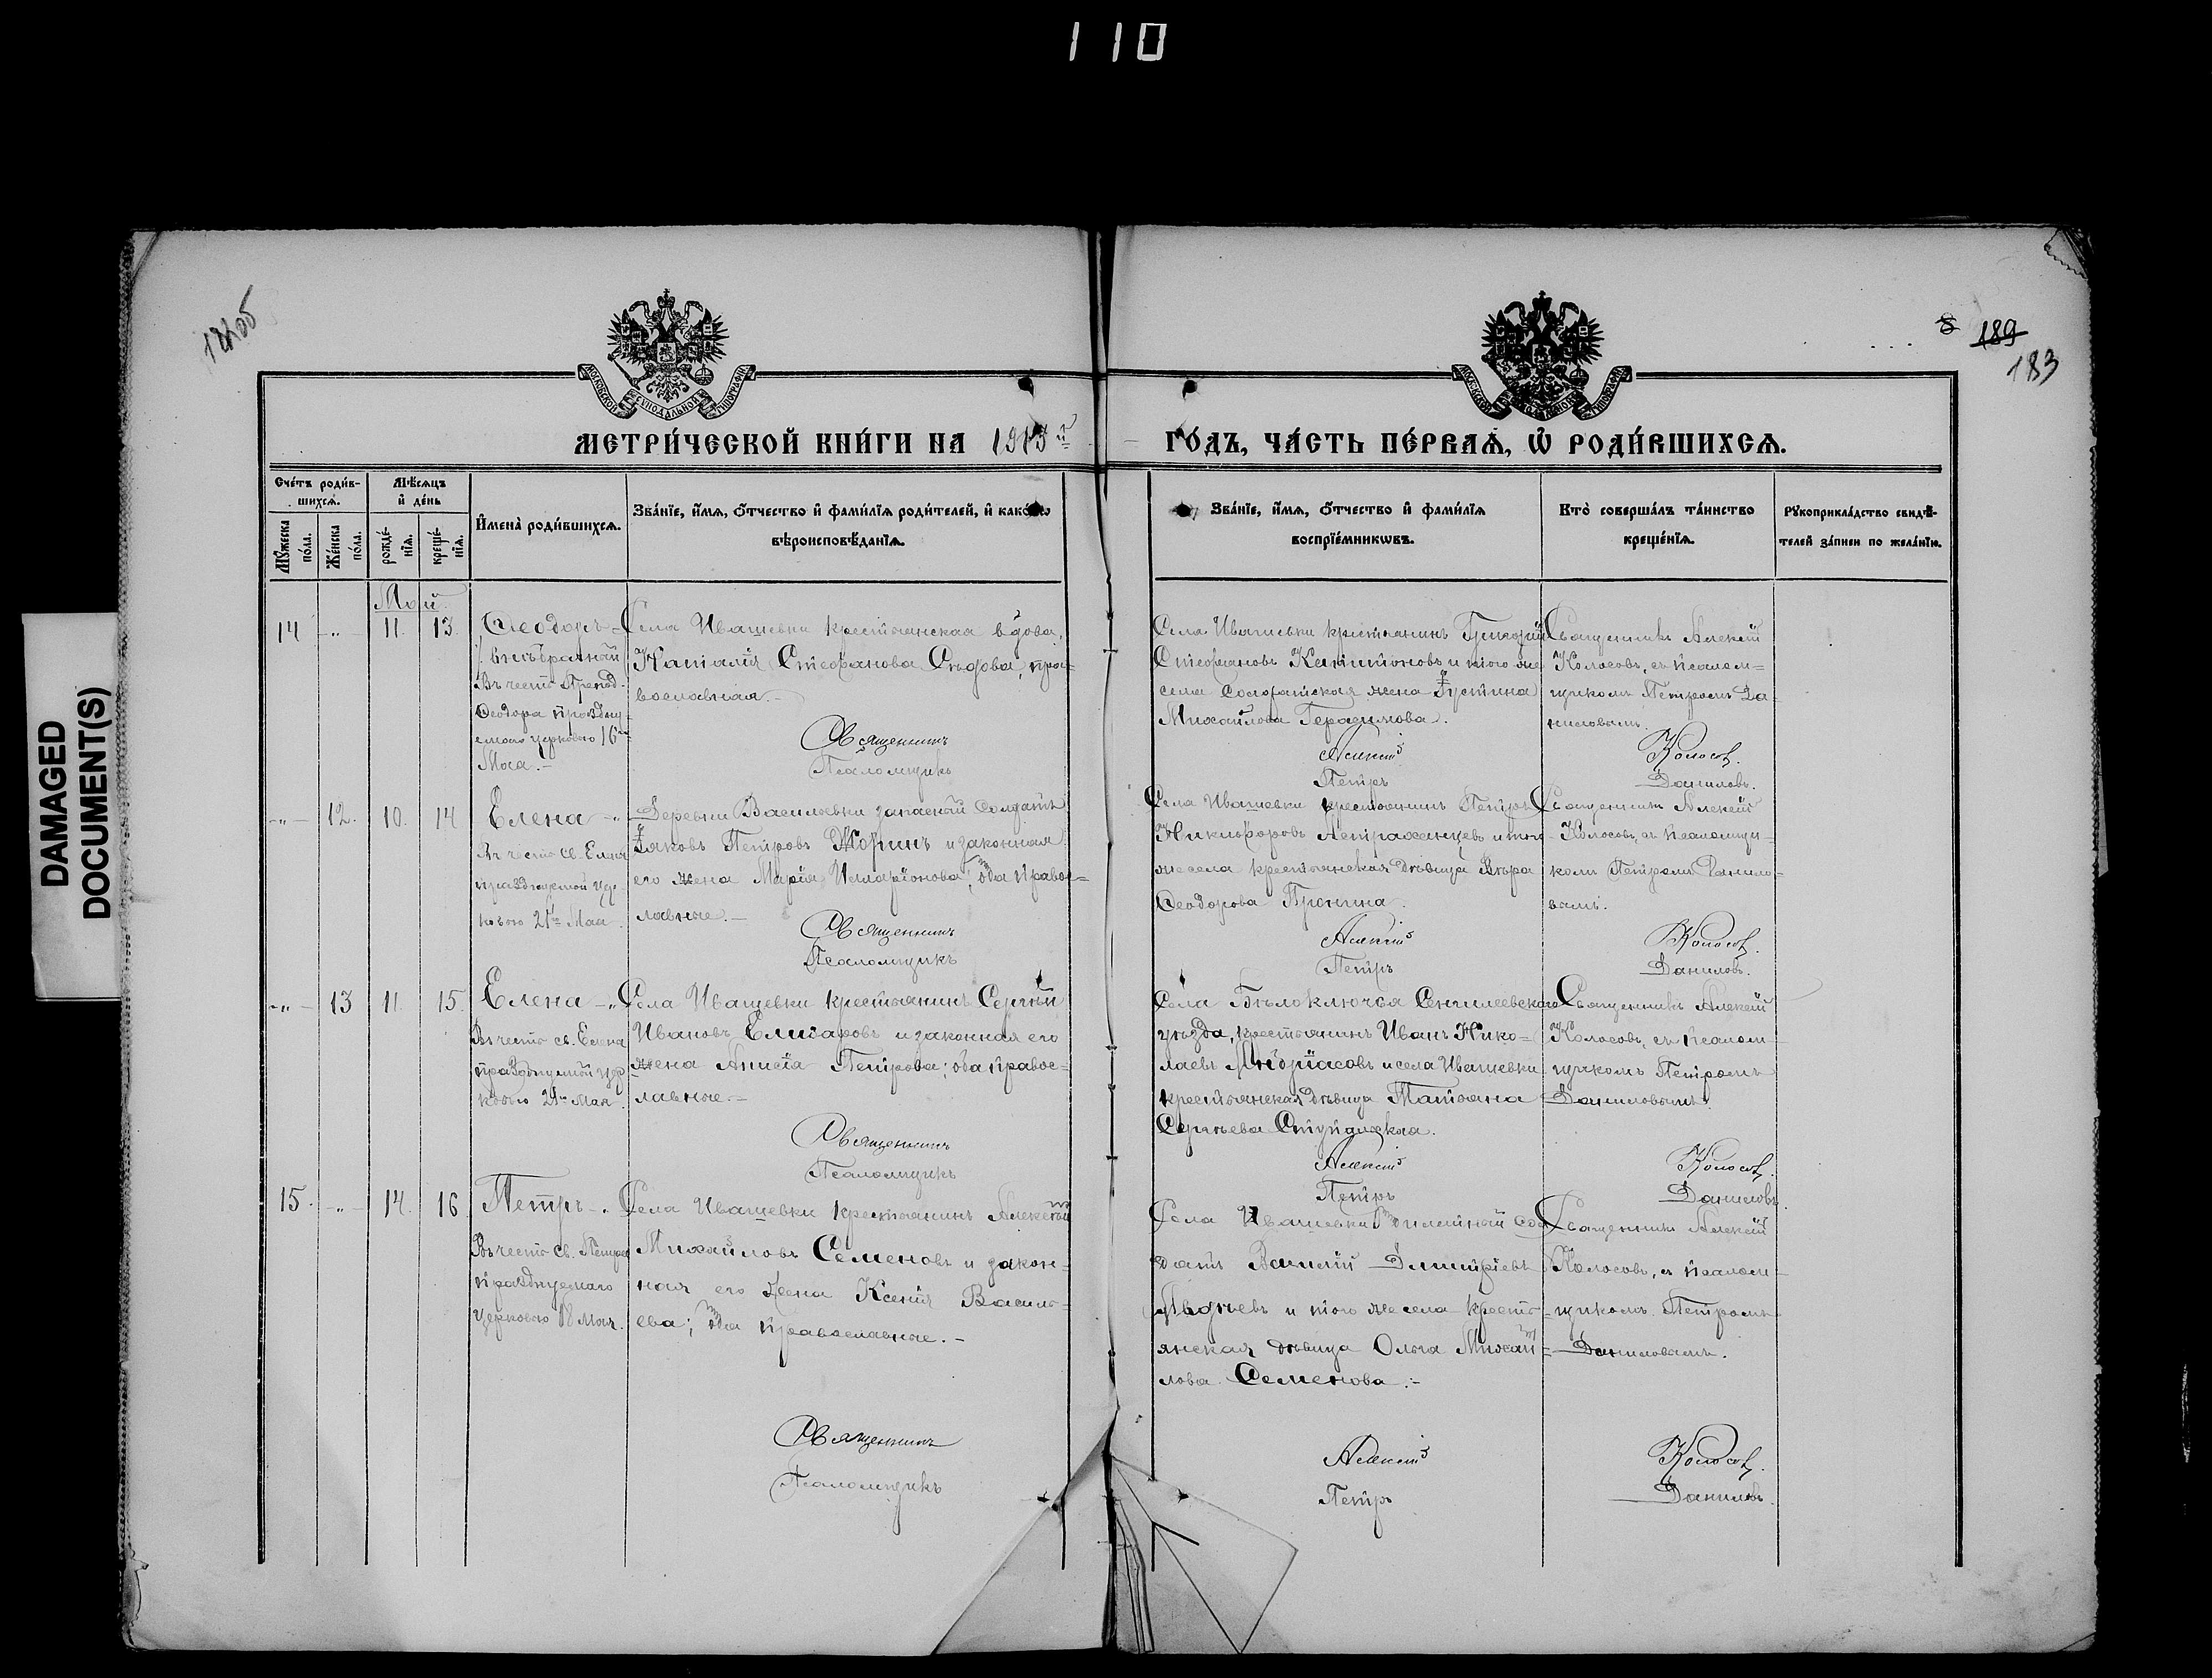 110
DAMAGED
DOCUMENT(S)
182об
189
183
МОСКОВСКОЙ СѴНОДАЛЬНОЙ ТИПОГРАФІИ
МЕТРИ́ЧЕСКОЙ КНИ́ГИ НА 1913й
ГО́ДЪ, ЧА́СТЬ ПЕ́РВАѦ, Ѡ҆ РОДИ́ВШИХСѦ.
Сче́тъ роди́в-
шихсѧ.
Мѣ́сѧцъ
и҆ де́нь
Мꙋ́жеска
по́ла.
Же́нска
по́ла.
рожде́-
нїѧ.
креще́-
нїѧ.
И҆мена̀ роди́вшихсѧ.
Зва́нїе, и҆́мѧ, ѻ҆́тчество и҆ фами́лїѧ роди́телей, и҆ како́гѡ
вѣроисповѣ́данїѧ.
Зва́нїе, и҆́мѧ, ѻ҆́тчество и҆ фами́лїѧ
воспрїе́мникѡвъ.
Кто̀ соверша́лъ та́инство
креще́нїѧ.
Рꙋкоприкла́дство свидѣ́-
телей за́писи по жела́нїю.
Май
14 -"- 11. 13. Ѳеодоръ-
внѣбрачный
Въ честь Препод.
Ѳеодора праздну-
емаго церковію 16го
Мая.-
Села Ивашевки крестьянская вдова,
Наталія Стефанова Сѣдова, пра-
вославная.-
Священникъ
Псаломщикъ
Села Ивашевки крестьянинъ Григорій
Стефановъ и того же
села солдатская жена Іустина
Михайлова Герасимова.
Алексій
Петръ
Священникъ Алексій
Колосовъ, съ псалом-
щикомъ Петромъ Да-
ниловымъ.
Колосов.
Даниловъ.
-"- 12. 10. 14 Елена -"
Въ честь св. Елены
празднуемой цер-
ковію 21го Мая.
Деревни Васильевки запасный солдатъ
Іаковъ Петровъ Жоринъ и законная
его жена Марія Илларіонова; оба правос-
лавные.-
Священникъ
Псаломщикъ
Села Ивашевки крестьянинъ Петръ
Никифоровъ и того
же села крестьянская дѣвица Вѣра
Ѳеодорова Пронина.
Алексій
Петръ
Священникъ Алексій
Колосовъ, съ псаломщи-
комъ Петромъ Данило-
вымъ.
Колосов.
Даниловъ.
-"- 13 11. 15. Елена -"
Въ честь св. Елены
празднуемой цер-
ковію 21го Мая.
Села Ивашевки крестьянинъ Сергѣй
Ивановъ Елизаровъ и законная его
жена Анисія Петрова; оба правос-
лавные.-
Священникъ
Псаломщикъ
Села Бѣлоключья Сенгилеевскаго
уѣзда, крестьянинъ Иванъ Нико-
лаевъ и села Ивашевки
крестьянская дѣвица Татьяна
Сергѣева
Алексій
Петръ
Священникъ Алексій
Колосовъ, съ псалом-
щикомъ Петромъ
Даниловымъ.
Колосов.
Даниловъ.
15. -"- 14. 16 Петръ -"
Въ честь св. Петра
празднуемаго
церковію 18 Мая.
Села Ивашевки крестьянинъ Алексѣй
Михайловъ Семеновъ и закон-
ная его жена Ксенія Василь-
ева; оба православные.-
Священникъ
Псаломщикъ
Села Ивашевки билетный сол
датъ Василій Димитріевъ
и того же села кресть-
янская дѣвица Ольга Михай-
лова Семенова.-
Алексій
Петръ
Священникъ Алексій
Колосовъ, съ псалом-
щикомъ Петромъ
Даниловымъ.
Колосов.
Даниловъ.